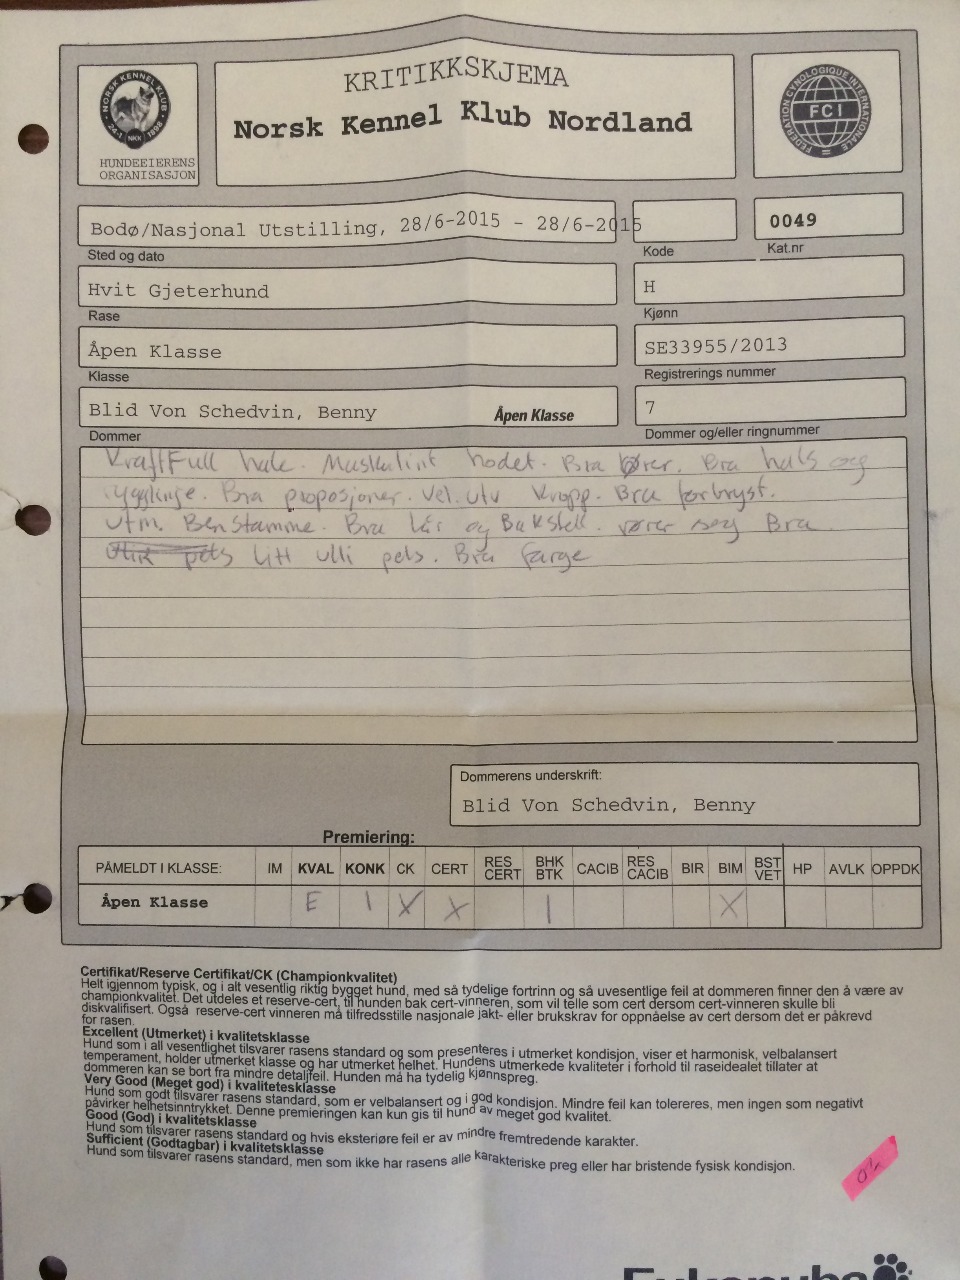 KRITIKKSKJEMA
Norsk Kennel Klub Nordland
NORSK KENNEL KLUB
24-1 NKK 1898
HUNDEEIERENS
ORGANISASJON
FEDERATION CYNOLOGIQUE INTERNATIONALE
FCI
Bodø/Nasjonal Utstilling, 28/6-2015 - 28/6-2015
Sted og dato
Kode
0049
Kat.nr
Hvit Gjeterhund
Rase
H
Kjønn
Åpen Klasse
Klasse
SE33955/2013
Registrerings nummer
Blid Von Schedvin, Benny
Åpen Klasse
Dommer
7
Dommer og/eller ringnummer
KraftFull hale. Maskulint hodet. Bra ører. Bra hals og
rygglinje. Bra proposjoner. Vel. utv kropp. Bra forbryst.
Utm. Benstamme. Bra lår og Bakstell. rører seg Bra
pels litt ulli pels. Bra farge
Dommerens underskrift:
Blid Von Schedvin, Benny
Premiering:
PÅMELDT I KLASSE: IM KVAL KONK CK CERT RES CERT BHK BTK CACIB RES CACIB BIR BIM BST VET HP AVLK OPPDK
Åpen Klasse E 1 X X 1 X
Certifikat/Reserve Certifikat/CK (Championkvalitet)
Helt igjennom typisk, og i alt vesentlig riktig bygget hund, med så tydelige fortrinn og så uvesentlige feil at dommeren finner den å være av
championkvalitet. Det utdeles et reserve-cert, til hunden bak cert-vinneren, som vil telle som cert dersom cert-vinneren skulle bli
diskvalifisert. Også reserve-cert vinneren må tilfredsstille nasjonale jakt- eller brukskrav for oppnåelse av cert dersom det er påkrevd
for rasen.
Excellent (Utmerket) i kvalitetsklasse
Hund som i all vesentlighet tilsvarer rasens standard og som presenteres i utmerket kondisjon, viser et harmonisk, velbalansert
temperament, holder utmerket klasse og har utmerket helhet. Hundens utmerkede kvaliteter i forhold til raseidealet tillater at
dommeren kan se bort fra mindre detaljfeil. Hunden må ha tydelig kjønnspreg.
Very Good (Meget god) i kvalitetesklasse
Hund som godt tilsvarer rasens standard, som er velbalansert og i god kondisjon. Mindre feil kan tolereres, men ingen som negativt
påvirker helhetsinntrykket. Denne premieringen kan kun gis til hund av meget god kvalitet.
Good (God) i kvalitetsklasse
Hund som tilsvarer rasens standard og hvis eksteriøre feil er av mindre fremtredende karakter.
Sufficient (Godtagbar) i kvalitetsklasse
Hund som tilsvarer rasens standard, men som ikke har rasens alle karakteriske preg eller har bristende fysisk kondisjon.
Eukanuba